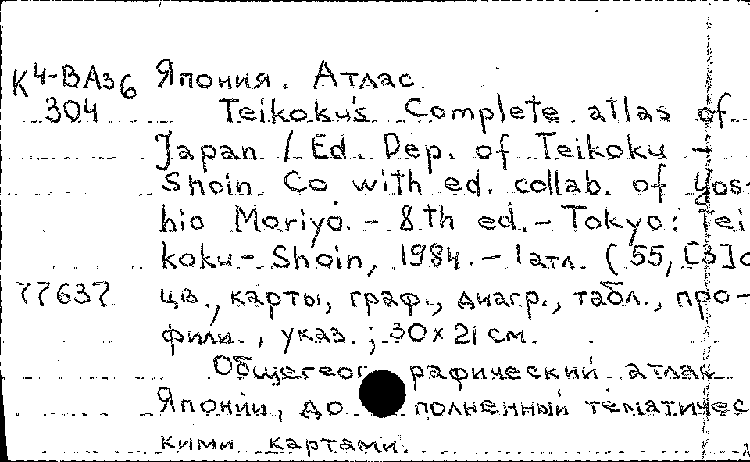 К4-ВАз6 Япония. Атлас
304 Teikoku's Complete atlas of
Japan / Ed. Dep. of Teikoku -
Shoin Co with ed. collab. of Yos-
hio Moriya. - 8th ed. - Tokyo: Tei
koku - Shoin, 1984. - 1 атл. (55, [3] с
77637 цв., карты, граф., диагр., табл., про-
фили., указ.; 30x21 см.
Общегеографический атлас
Японии, дополненный тематичес
кими картами.